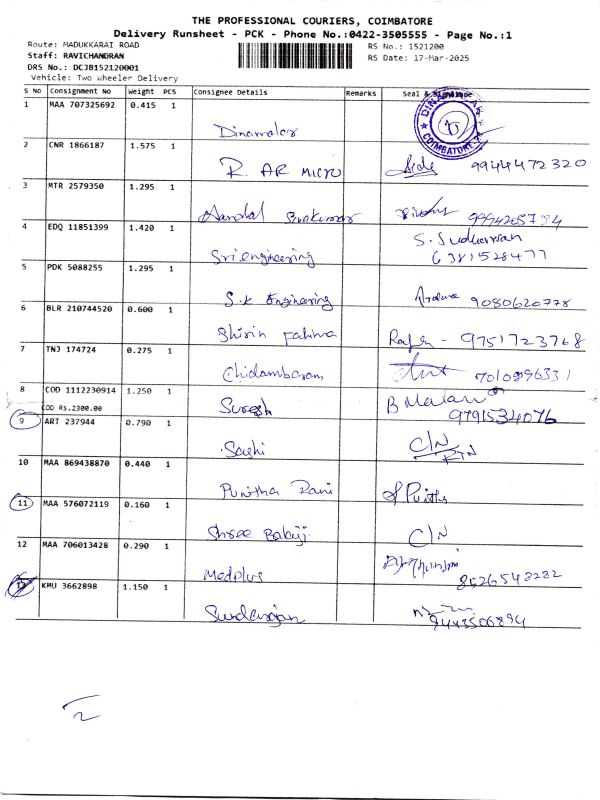 THE PROFESSIONAL COURIERS, COIMBATORE
Delivery Runsheet - PCK - Phone No.:0422-3505555 - Page No.:1
Route: MADUKKARAI ROAD
RS No.: 1521200
Staff: RAVICHANDRAN
RS Date: 17-Mar-2025
DRS No.: DCJB152120001
Vehicle: Two Wheeler Delivery
S No Consignment No Weight PCS Consignee Details Remarks Seal &
1 MAA 707325692 0.415 1
Dinamalar
COIMBATORE
2 CNR 1866187 1.575 1
R. AR MICRO 9944472320
3 MTR 2579350 1.295 1
Sivakumar
4 EDQ 11851399 1.420 1
Sri engineering
S. Sudharsan
6381528477
5 PDK 5088255 1.295 1
S.K Engineering 9080620778
6 BLR 210744520 0.600 1
Shirin Fathima - 9751723768
7 TNJ 174724 0.275 1
Chidambaram 7010896331
8 COD 1112230914 1.250 1
COD Rs.2300.00
Suresh
B Malar
9791534076
9 ART 237944 0.790 1
C/N
RTN
10 MAA 869438870 0.440 1
Punitha Rani
11 MAA 576072119 0.160 1
Shree Balaji C/N
12 MAA 706013428 0.290 1
Medplus
8526548282
KMU 3662898 1.150 1
Sundarajan
9443506894